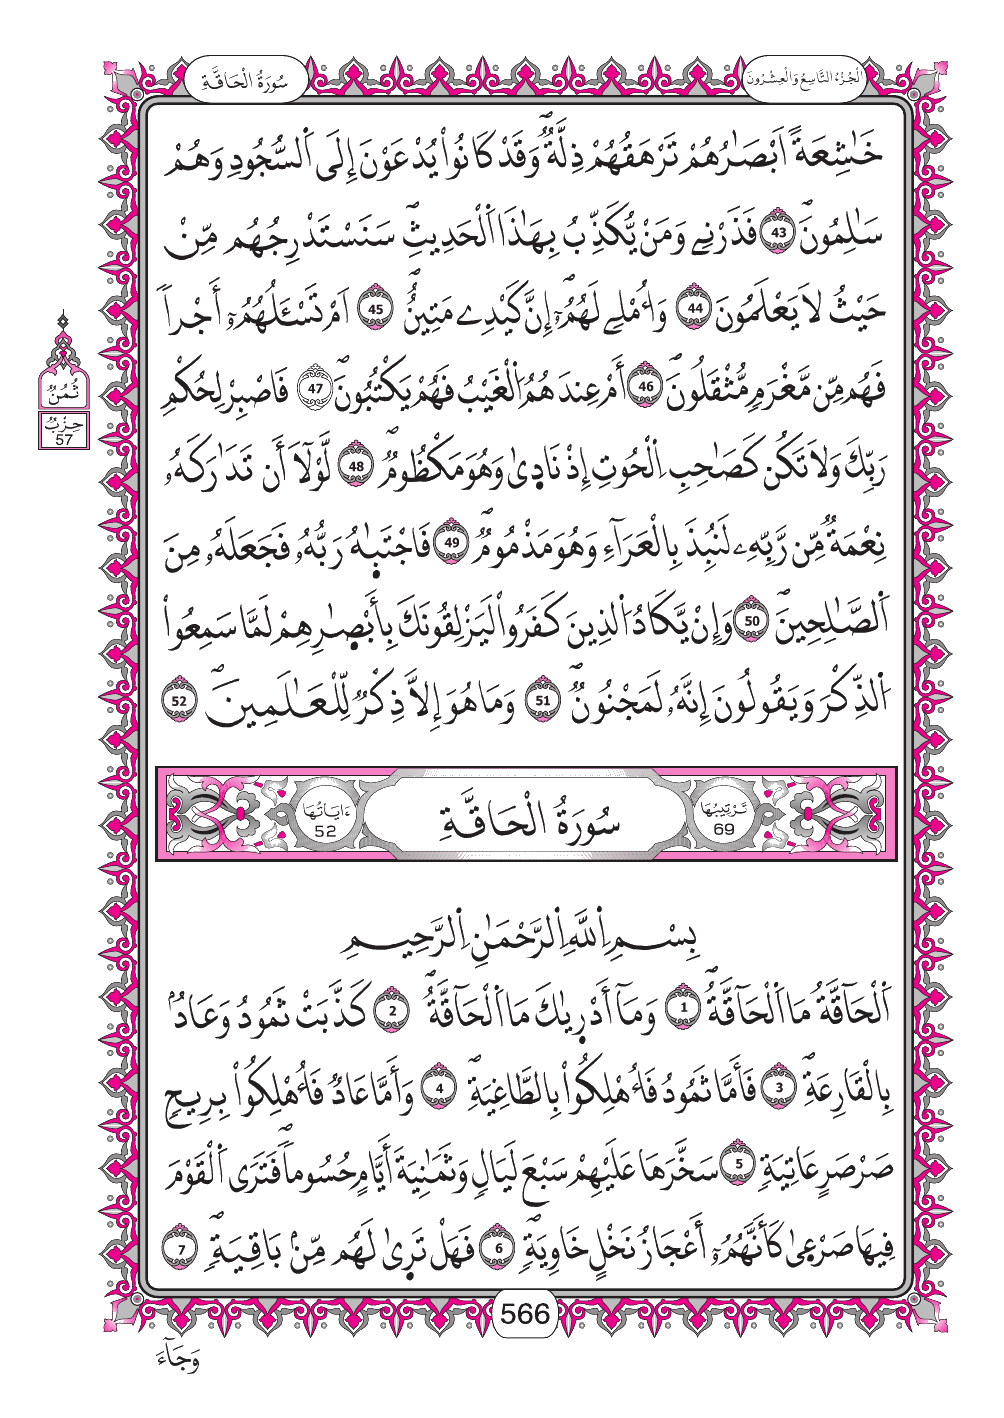 سُورَةُ الْحَاقَّةِ
الْجُزْءُ التَّاسِعُ وَالْعِشْرُونَ
خَٰشِعَةً اَبْصَٰرُهُمْ تَرْهَقُهُمْ ذِلَّةٞۖ وَقَدْ كَانُواْ يُدْعَوْنَ إِلَى اَلسُّجُودِ وَهُمْ
سَٰلِمُونَۖ 43 فَذَرْنِے وَمَنْ يُّكَذِّبُ بِهَٰذَا اَلْحَدِيثِۖ سَنَسْتَدْرِجُهُم مِّنْ
حَيْثُ لَا يَعْلَمُونَ 44 وَأُمْلِے لَهُمُۥٓۖ إِنَّ كَيْدِے مَتِينٌۖ 45 اَمْ تَسْـَٔلُهُمُۥٓ أَجْراٗ
فَهُم مِّن مَّغْرَمٖ مُّثْقَلُونَۖ 46 أَمْ عِندَهُمُ اُلْغَيْبُ فَهُمْ يَكْتُبُونَۖ 47 فَاصْبِرْ لِحُكْمِ
رَبِّكَ وَلَا تَكُن كَصَاحِبِ اِلْحُوتِ إِذْ نَادٜىٰ وَهُوَ مَكْظُومٞۖ 48 لَّوْلَآ أَن تَدَٰرَكَهُۥ
نِعْمَةٞ مِّن رَّبِّهِۦ لَنُبِذَ بِالْعَرَآءِ وَهُوَ مَذْمُومٞۖ 49 فَاجْتَبٰٜهُ رَبُّهُۥ فَجَعَلَهُۥ مِنَ
اَلصَّٰلِحِينَۖ 50 وَإِنْ يَّكَادُ اُلذِينَ كَفَرُواْ لَيَزْلِقُونَكَ بِأَبْصٰٜرِهِمْ لَمَّا سَمِعُواْ
اُلذِّكْرَ وَيَقُولُونَ إِنَّهُۥ لَمَجْنُونٞۖ 51 وَمَا هُوَ إِلَّا ذِكْرٞ لِّلْعَٰلَمِينَۖ 52
ثُمُنُ
حِزْبُ
57
تَرْتِيبُهَا
69
سُورَةُ الْحَاقَّةِ
ءَايَاتُهَا
52
بِسْمِ اِللَّهِ اِلرَّحْمَٰنِ اِلرَّحِيمِ
اَلْحَآقَّةُ مَا اَلْحَآقَّةُۖ 1 وَمَآ أَدْرٜيٰكَ مَا اَلْحَآقَّةُۖ 2 كَذَّبَتْ ثَمُودُ وَعَادُۢ
بِالْقَارِعَةِۖ 3 فَأَمَّا ثَمُودُ فَأُهْلِكُواْ بِالطَّاغِيَةِۖ 4 وَأَمَّا عَادٞ فَأُهْلِكُواْ بِرِيحٖ
صَرْصَرٍ عَاتِيَةٖ 5 سَخَّرَهَا عَلَيْهِمْ سَبْعَ لَيَالٖ وَثَمَٰنِيَةَ أَيَّامٍ حُسُوماٗۖ فَتَرَى اَلْقَوْمَ
فِيهَا صَرْعٜىٰ كَأَنَّهُمُۥٓ أَعْجَازُ نَخْلٍ خَاوِيَةٖۖ 6 فَهَلْ تَرٜىٰ لَهُم مِّنۢ بَاقِيَةٖۖ 7
566
وَجَآءَ